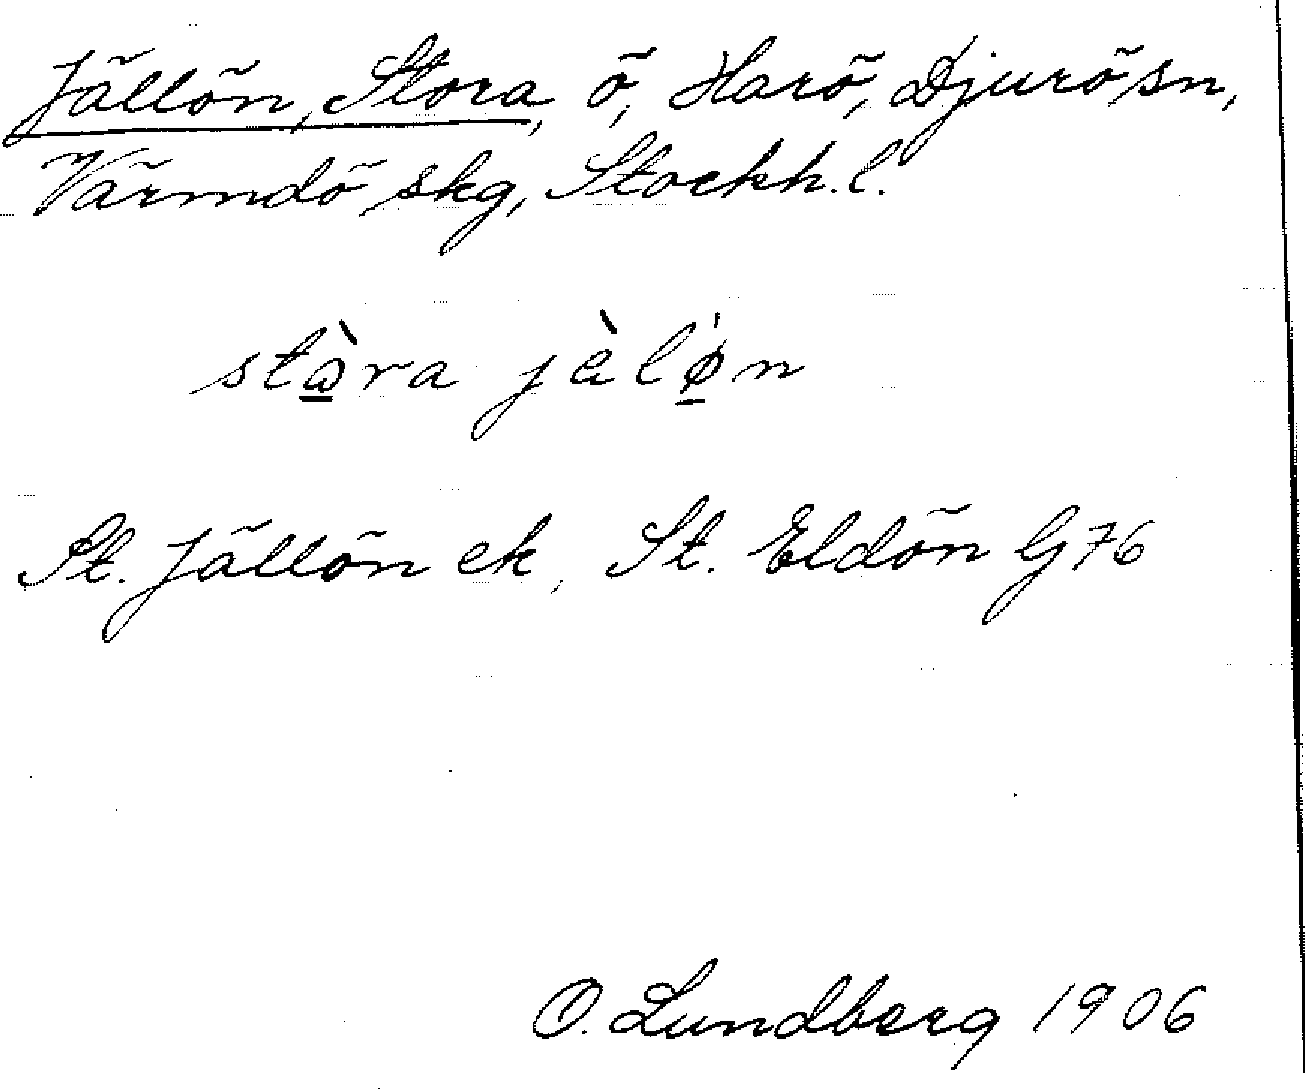 Jällön, Stora, ö, Harö, Djurö sn,
Värmdö skg, Stockh. l.
stò̱ra jèlø̱̍n
St. Jällön ek, St. Eldön G 76
O. Lundberg 1906